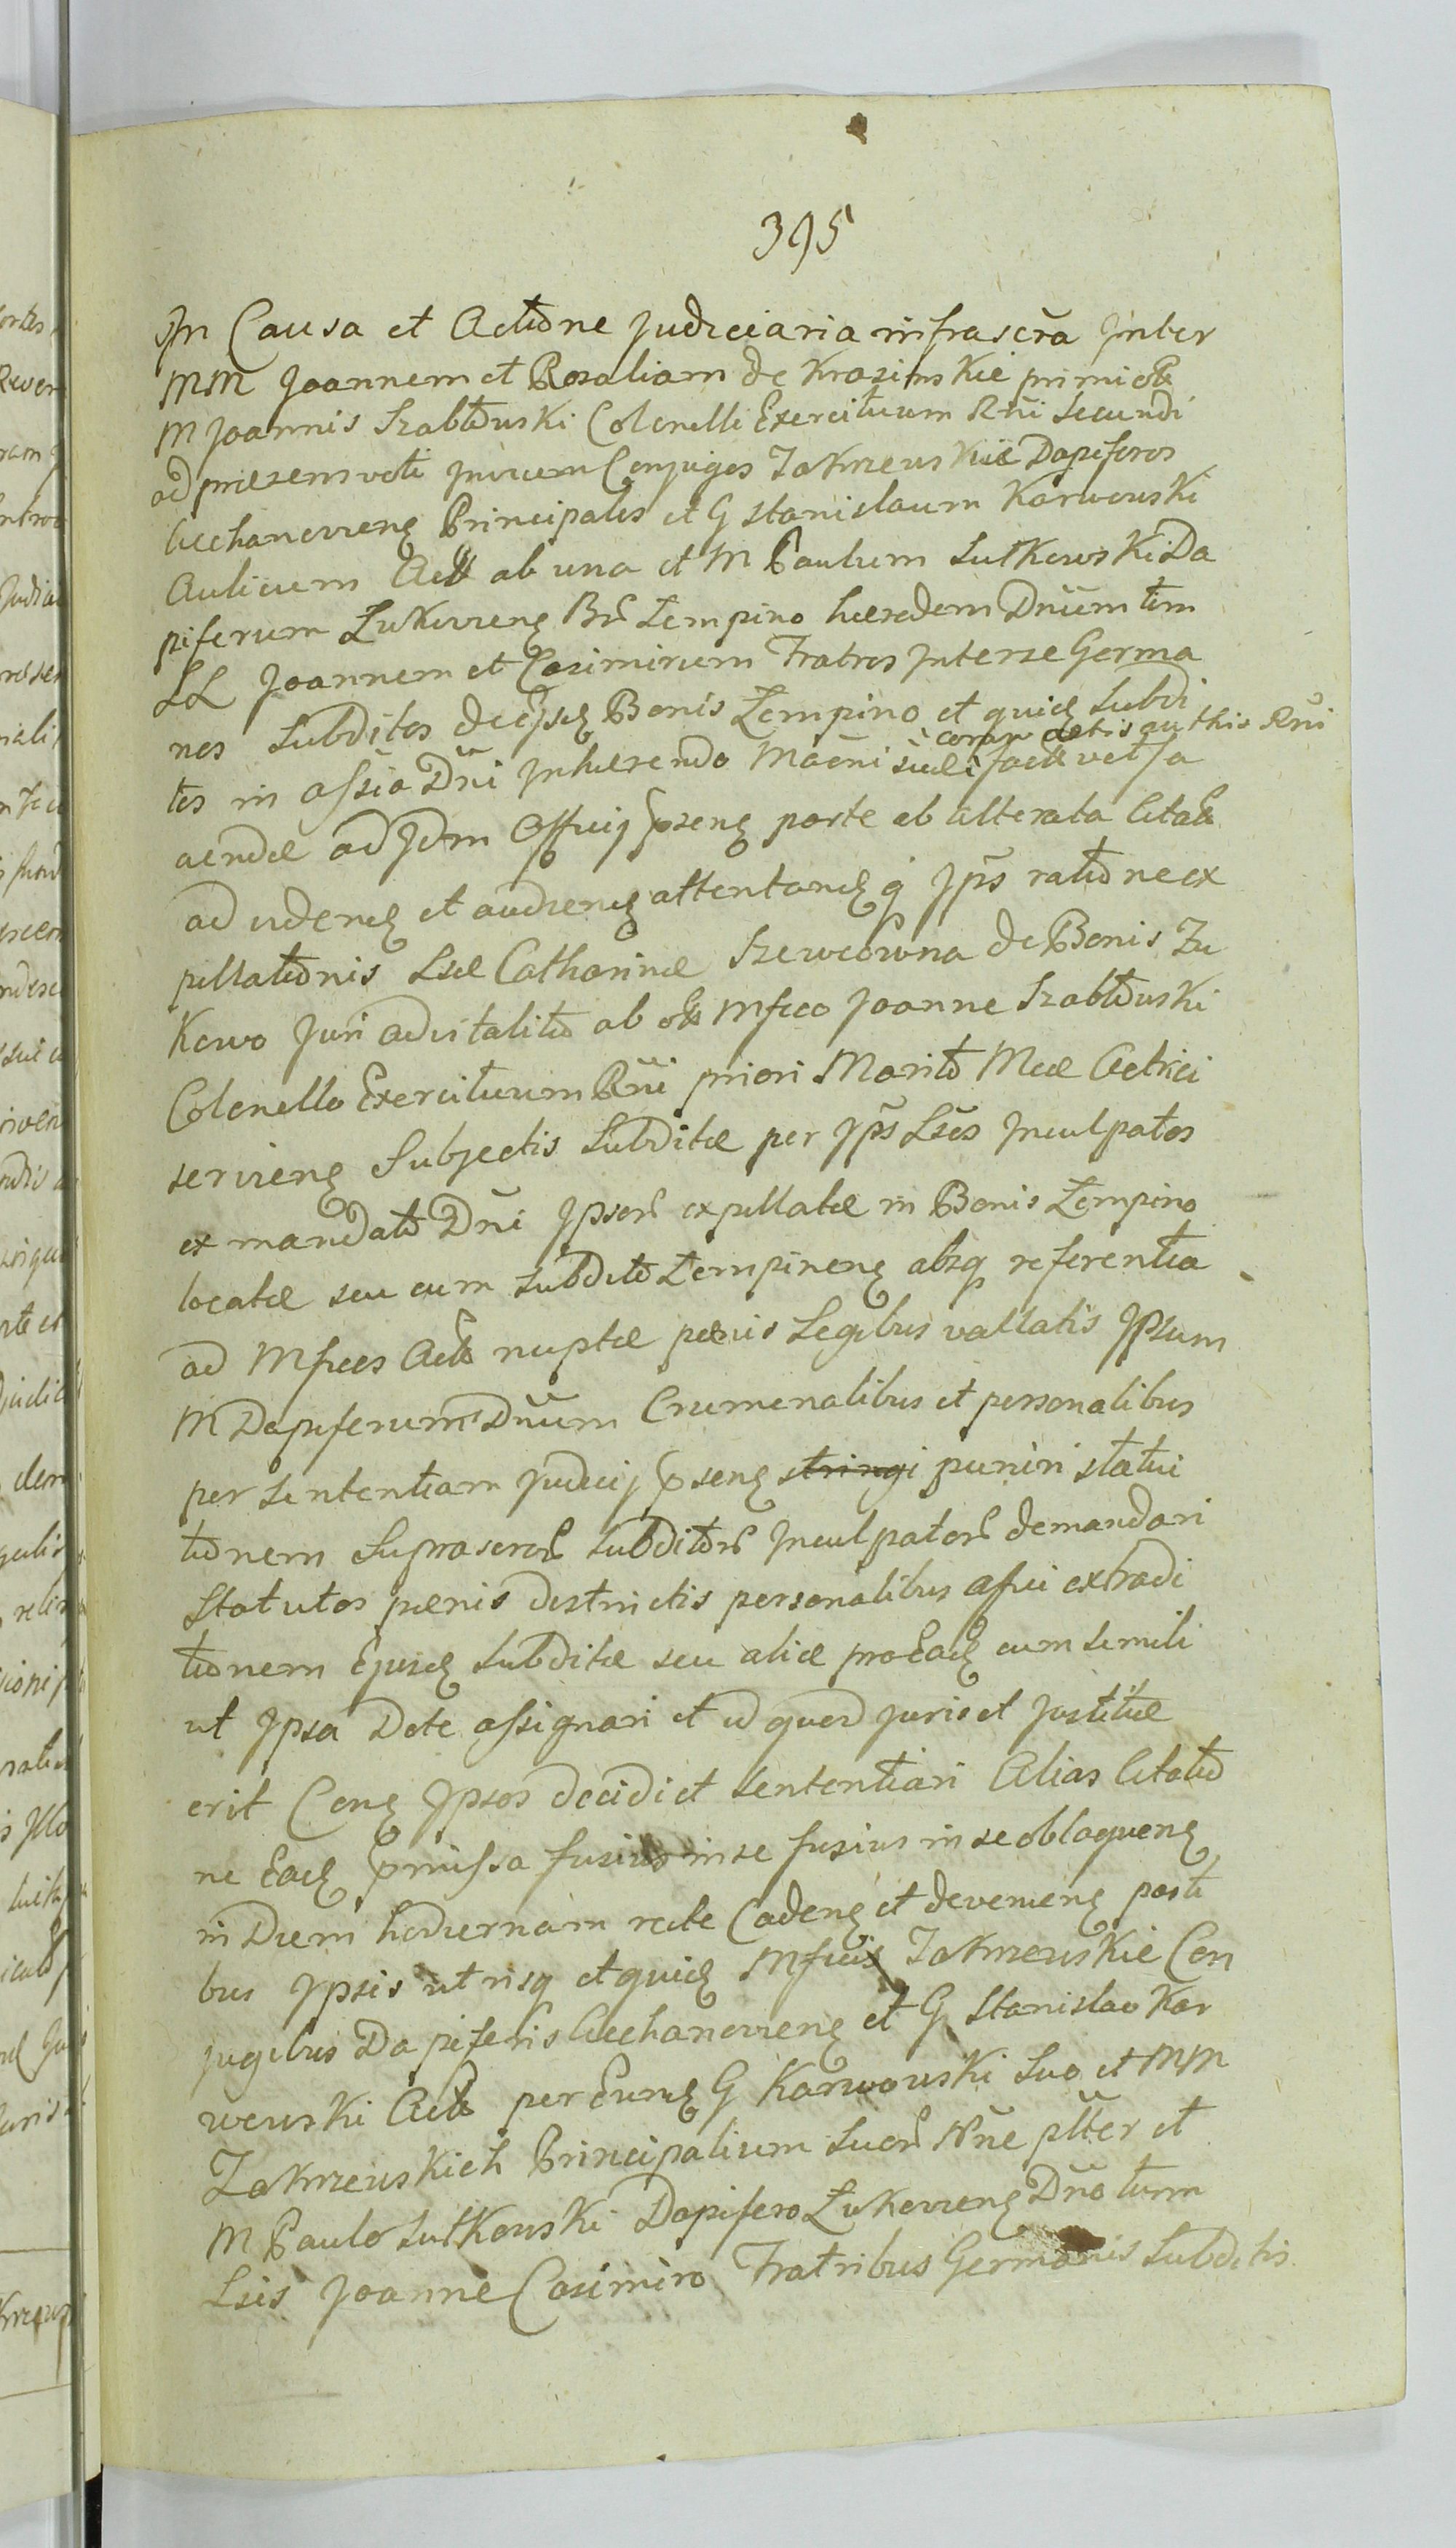 395
In Causa et Actione Judiciaria infrascra Inter
MM Joannem et Rosaliam de Krasinskie primi olt
M Joannis Szabłowski Colonelli Exercituum Rni secundi
ad praesens voti Invicem Conjuges Zakrzewskie Dapiferos
Ciechanovien Principales et G Stanislaum Karwowski
Aulicum Act ab una et M Paulum Sutkowski Da
piferum Lukovien Br Zempino haeredem Dnum tum
LL Joannem et Casimirum Fratres Interse Germa
nos Subditos de ejsd Bonis Zempino et quid Subdi
tes in assia Dni Inhaerendo Maoni coram actis authis Rni
aendae ad Idm Officij psens parte ab altera Citatt
ad vidend et audiend attentand q Ips ratione ex
pillationis Lsae Catharinae Szewcowna de Bonis Zu
kowo Juri advitalitio ab olt Mfico Joanne Szabłowski
Colonello Exercituum Rni priori Marito Mae Actrici
servien Subjectis Subditae per Ips Lses Inculpatos
ex mandato Dni Ipsor expillatae in Bonis Zempino
locatae seu cum Subdito Zempinen absq referentia
ad Mficos Act nuptae paenis Legibus vallatis Ipsum
M Dapiferum Dnum Crumenalibus et personalibus
per Sententiam Judicij psens stringi puniri statui
tionem Suprascror Subditor Inculpator demandari
Statutos paenis destrictis personalibus affici extradi
tionem Ejusd Subditae seu aliae pro Ead cum simili
ut Ipsa Dote assignari et id quod juris et Justitiae
erit Cong Ipsos decidi et sententiari Alias Citatio
ne Ead pmissa fusius in se fusius in se oblaquen
in Diem hodiernam recte Caden et devenien parti
bus Ipsis utrisq et quid Mficis Zakrzewskie Con
jugibus Dapiferis Ciechanovien et G Stanislao Kar
wowski Act per Eund G Karwowski Suo et MM
Zakrzewskich Principalium Suor Nne pltter et
M Paulo Sutkowski Dapifero Lukovien Dno tum
Lsis Joanne Casimiro Fratribus Germanis Subditis